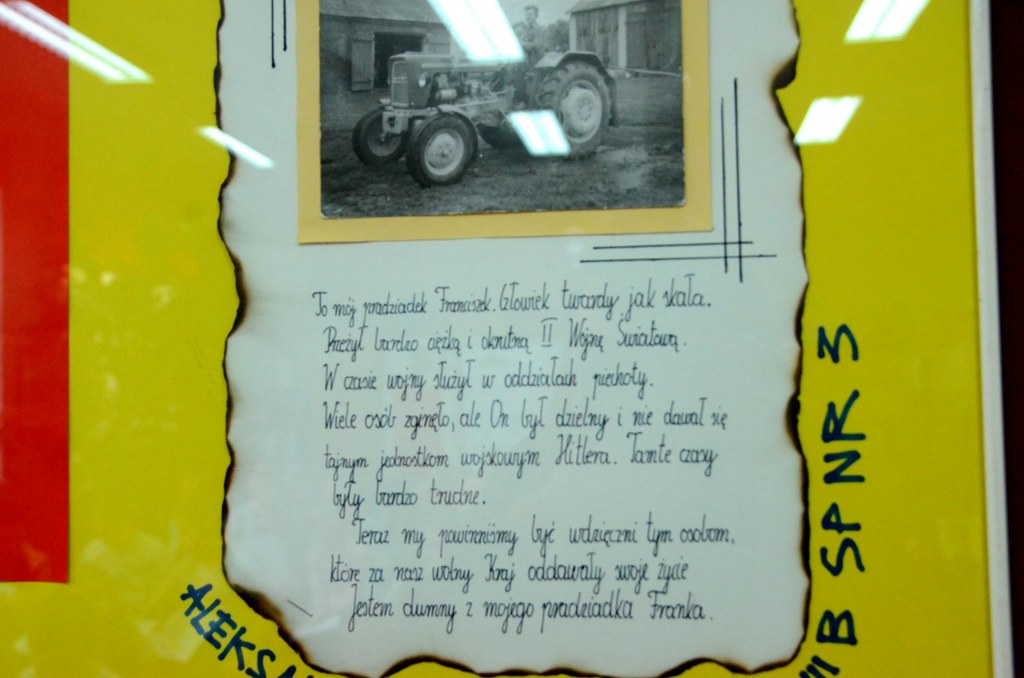 To mój pradziadek Franciszek. Człowiek twardy jak skała.
Przeżył bardzo ciężką i okrutną II Wojnę Światową.
W czasie wojny służył w oddziałach piechoty.
Wiele osób zginęło, ale On był dzielny i nie dawał się
tajnym jednostkom wojskowym Hitlera. Tamte czasy
były bardzo trudne.
Teraz my powinniśmy być wdzięczni tym osobom,
które za nasz wolny Kraj oddawały swoje życie
Jestem dumny z mojego pradziadka Franka.
B SPNR 3